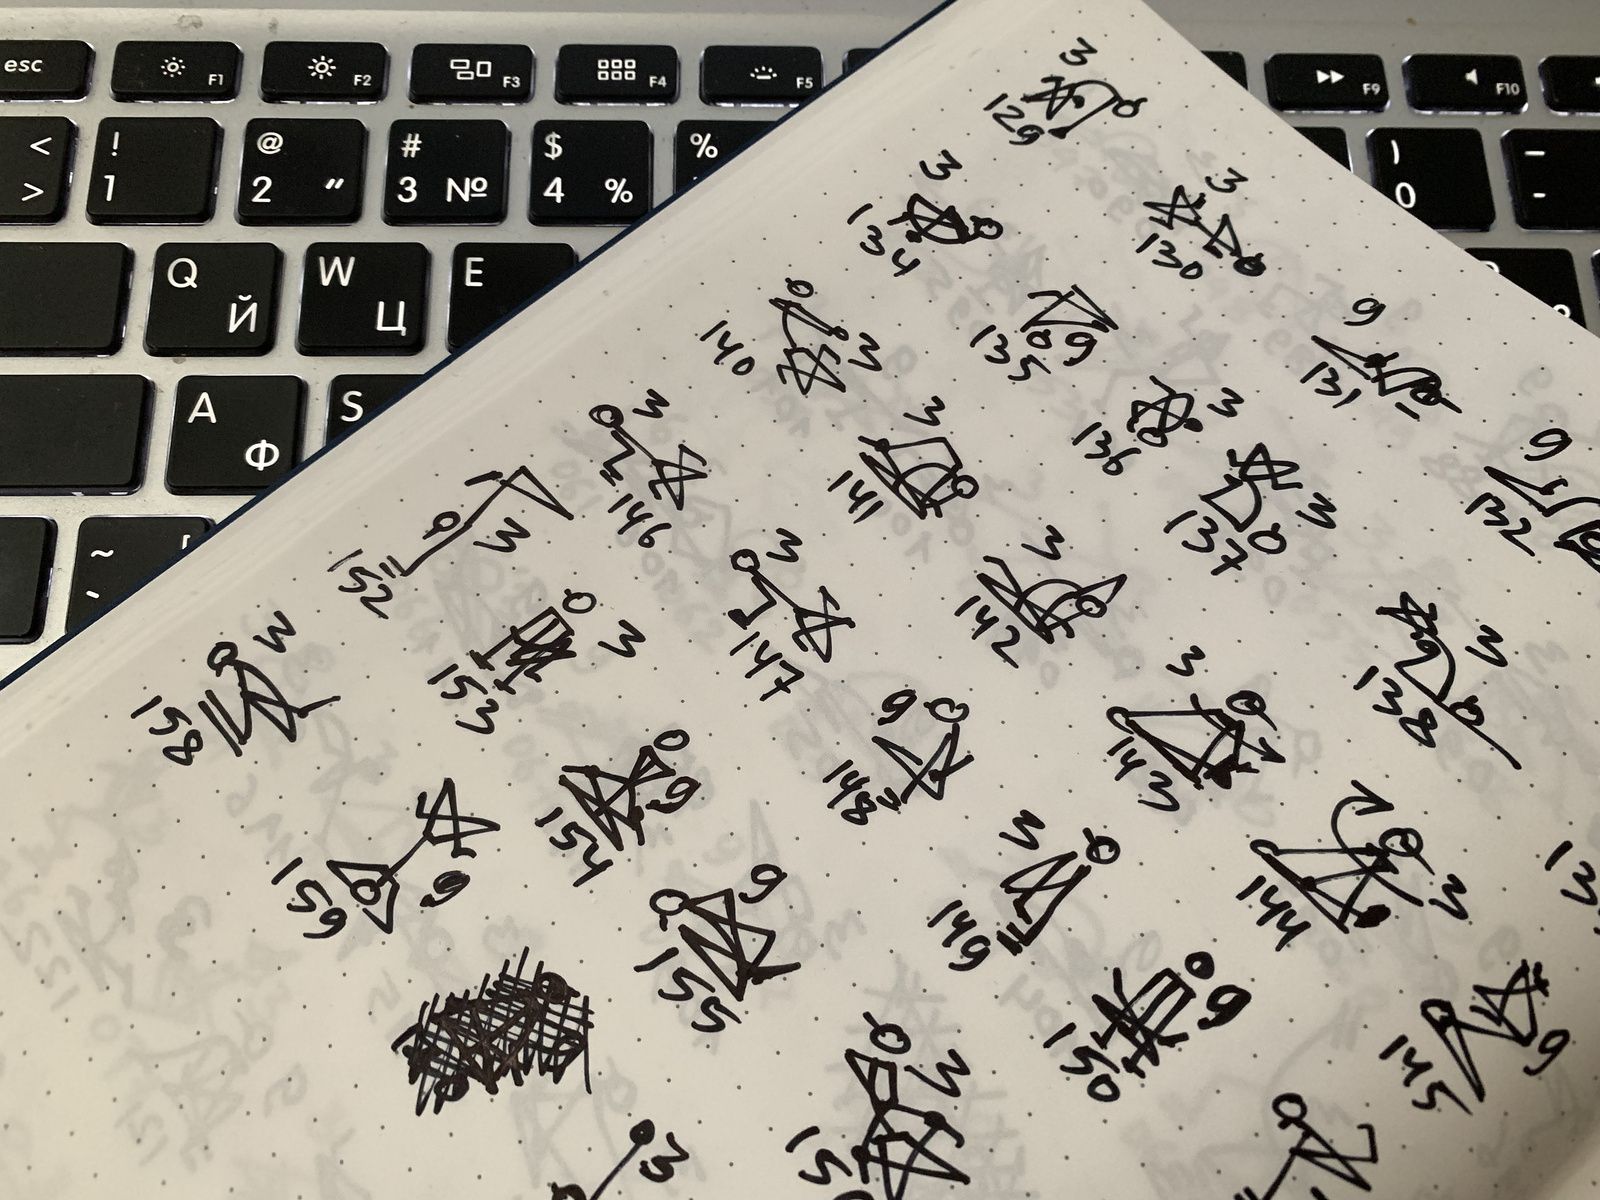 esc F1 F2 F3 F4 F5 F9 F10
< > ! 1 @ 2 " # 3 № $ 4 % % ) 0 – -
Q Й W Ц E
A Ф S
~
129 3
130 3
131 9
132 9
134 3
135 9
136 3
137 3
138 3
140 3
141 3
142 3
143 3
144 3
145 9
146 3
147 3
148 9
149 3
150 9
152 3
153 3
154 9
155 9
158 3
159 9
3